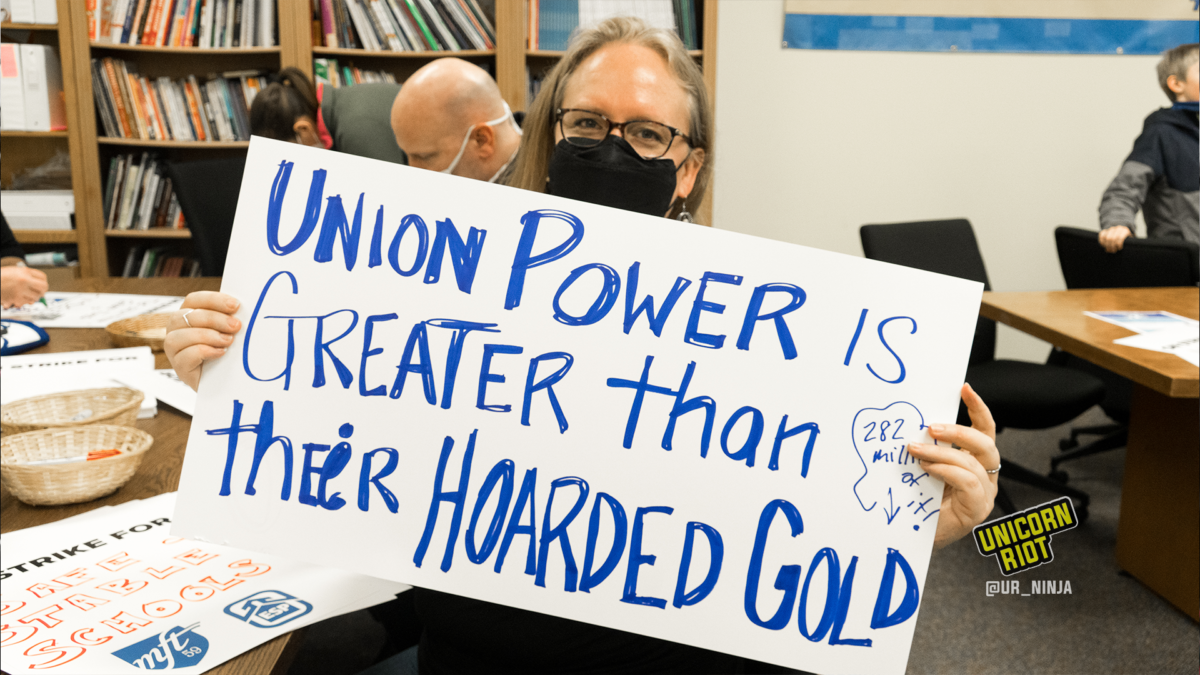 UNION POWER IS
GREATER than
their HOARDED GOLD
282
STRIKE FOR
STRIKE FOR
SAFE
STABLE
SCHOOLS
mft
59
ESP
UNICORN
RIOT
@UR_NINJA